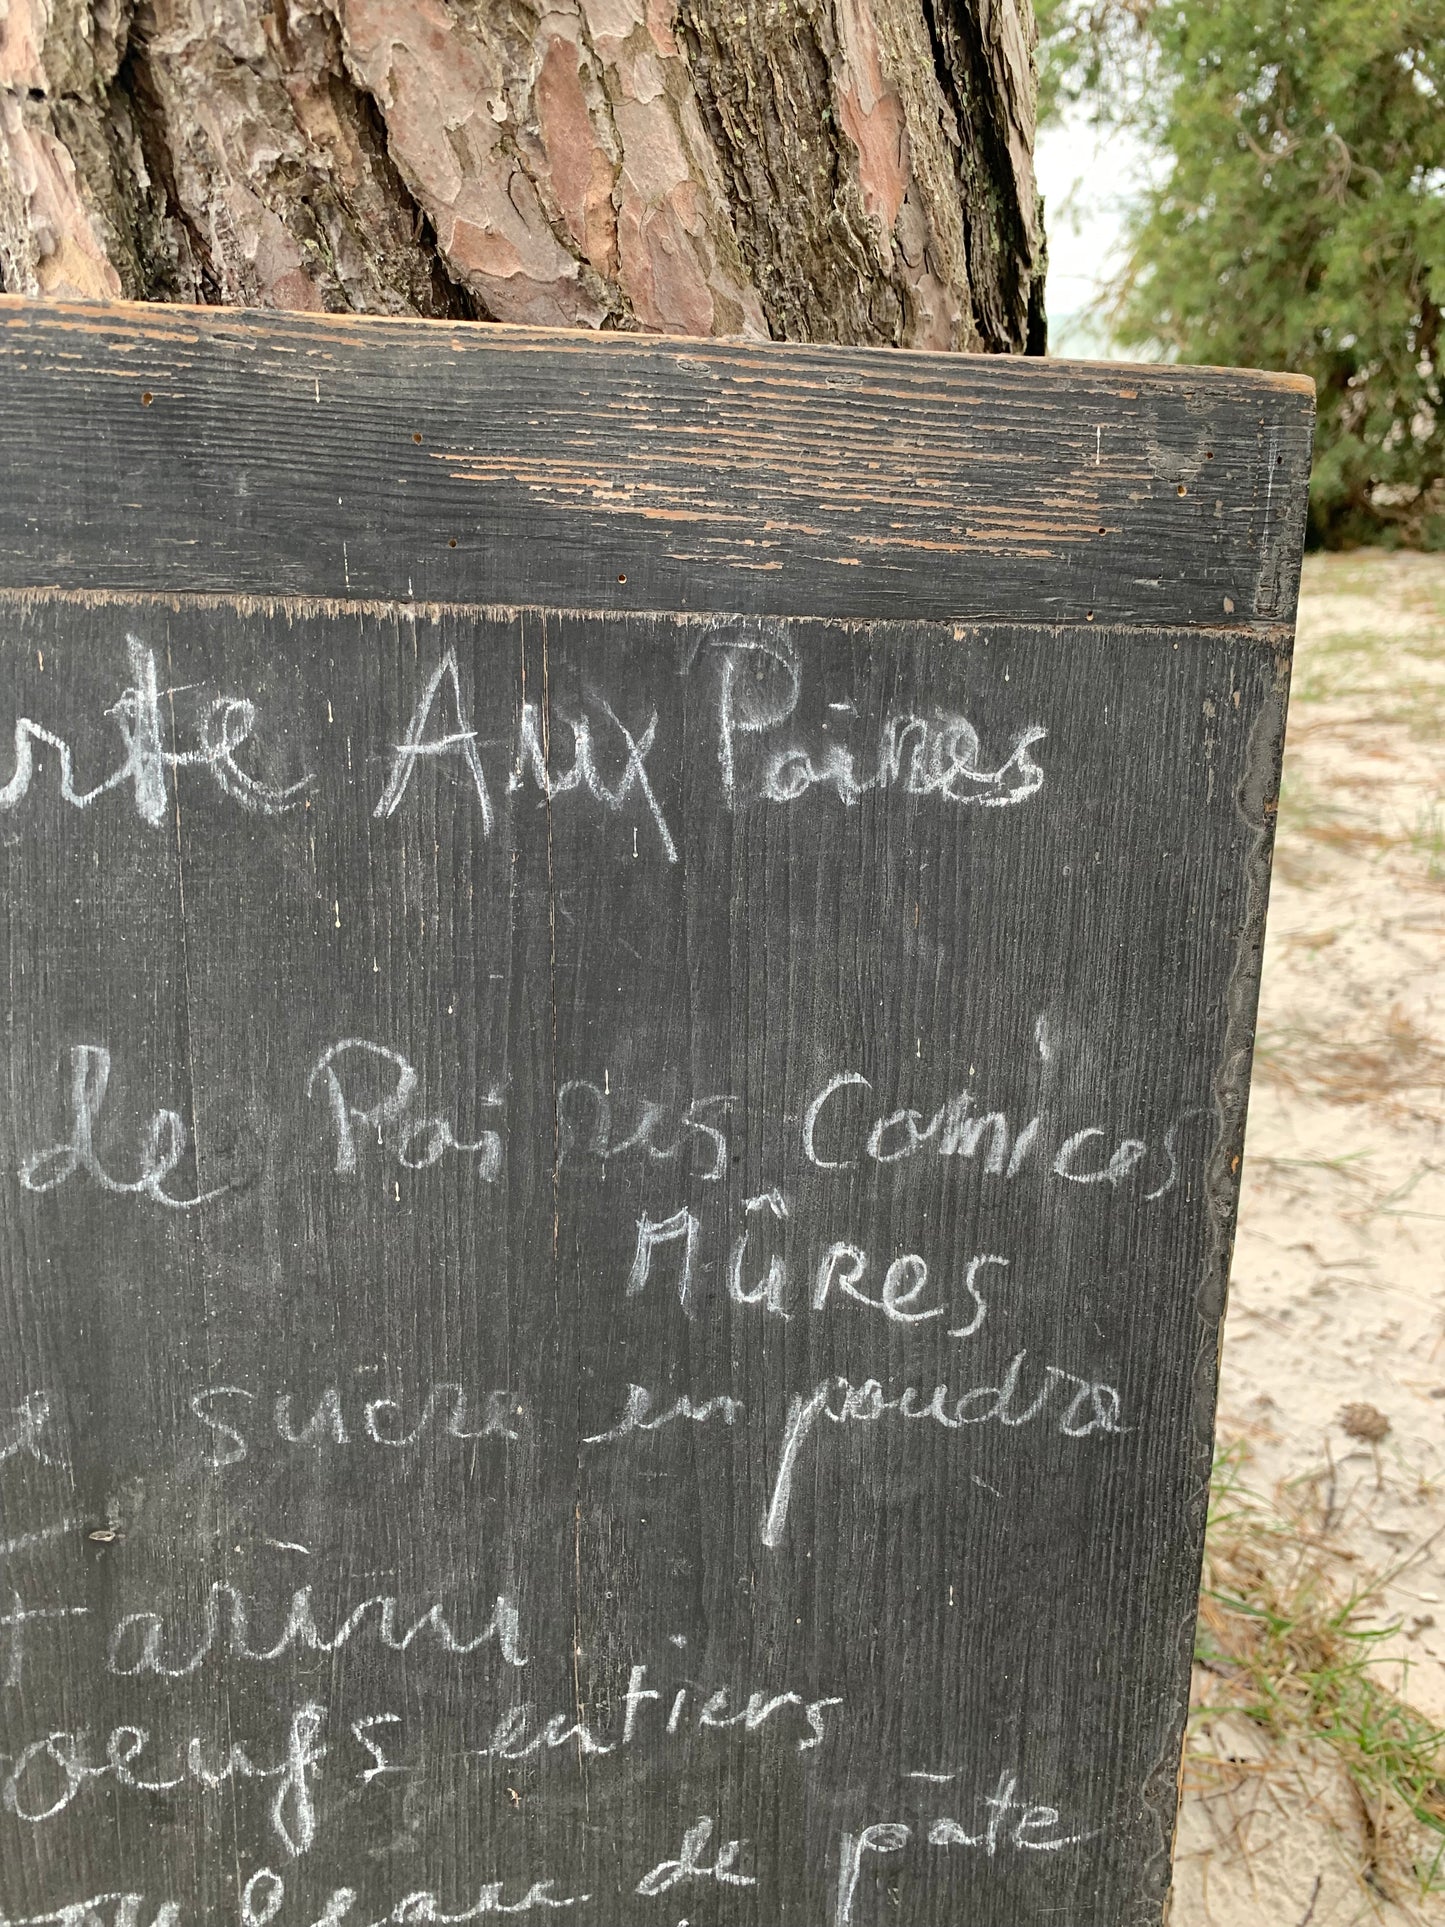 rte Aux Poires
de Poires Comices
Mûres
sucre en poudre
Farine
oeufs entiers
rouleau de pâte